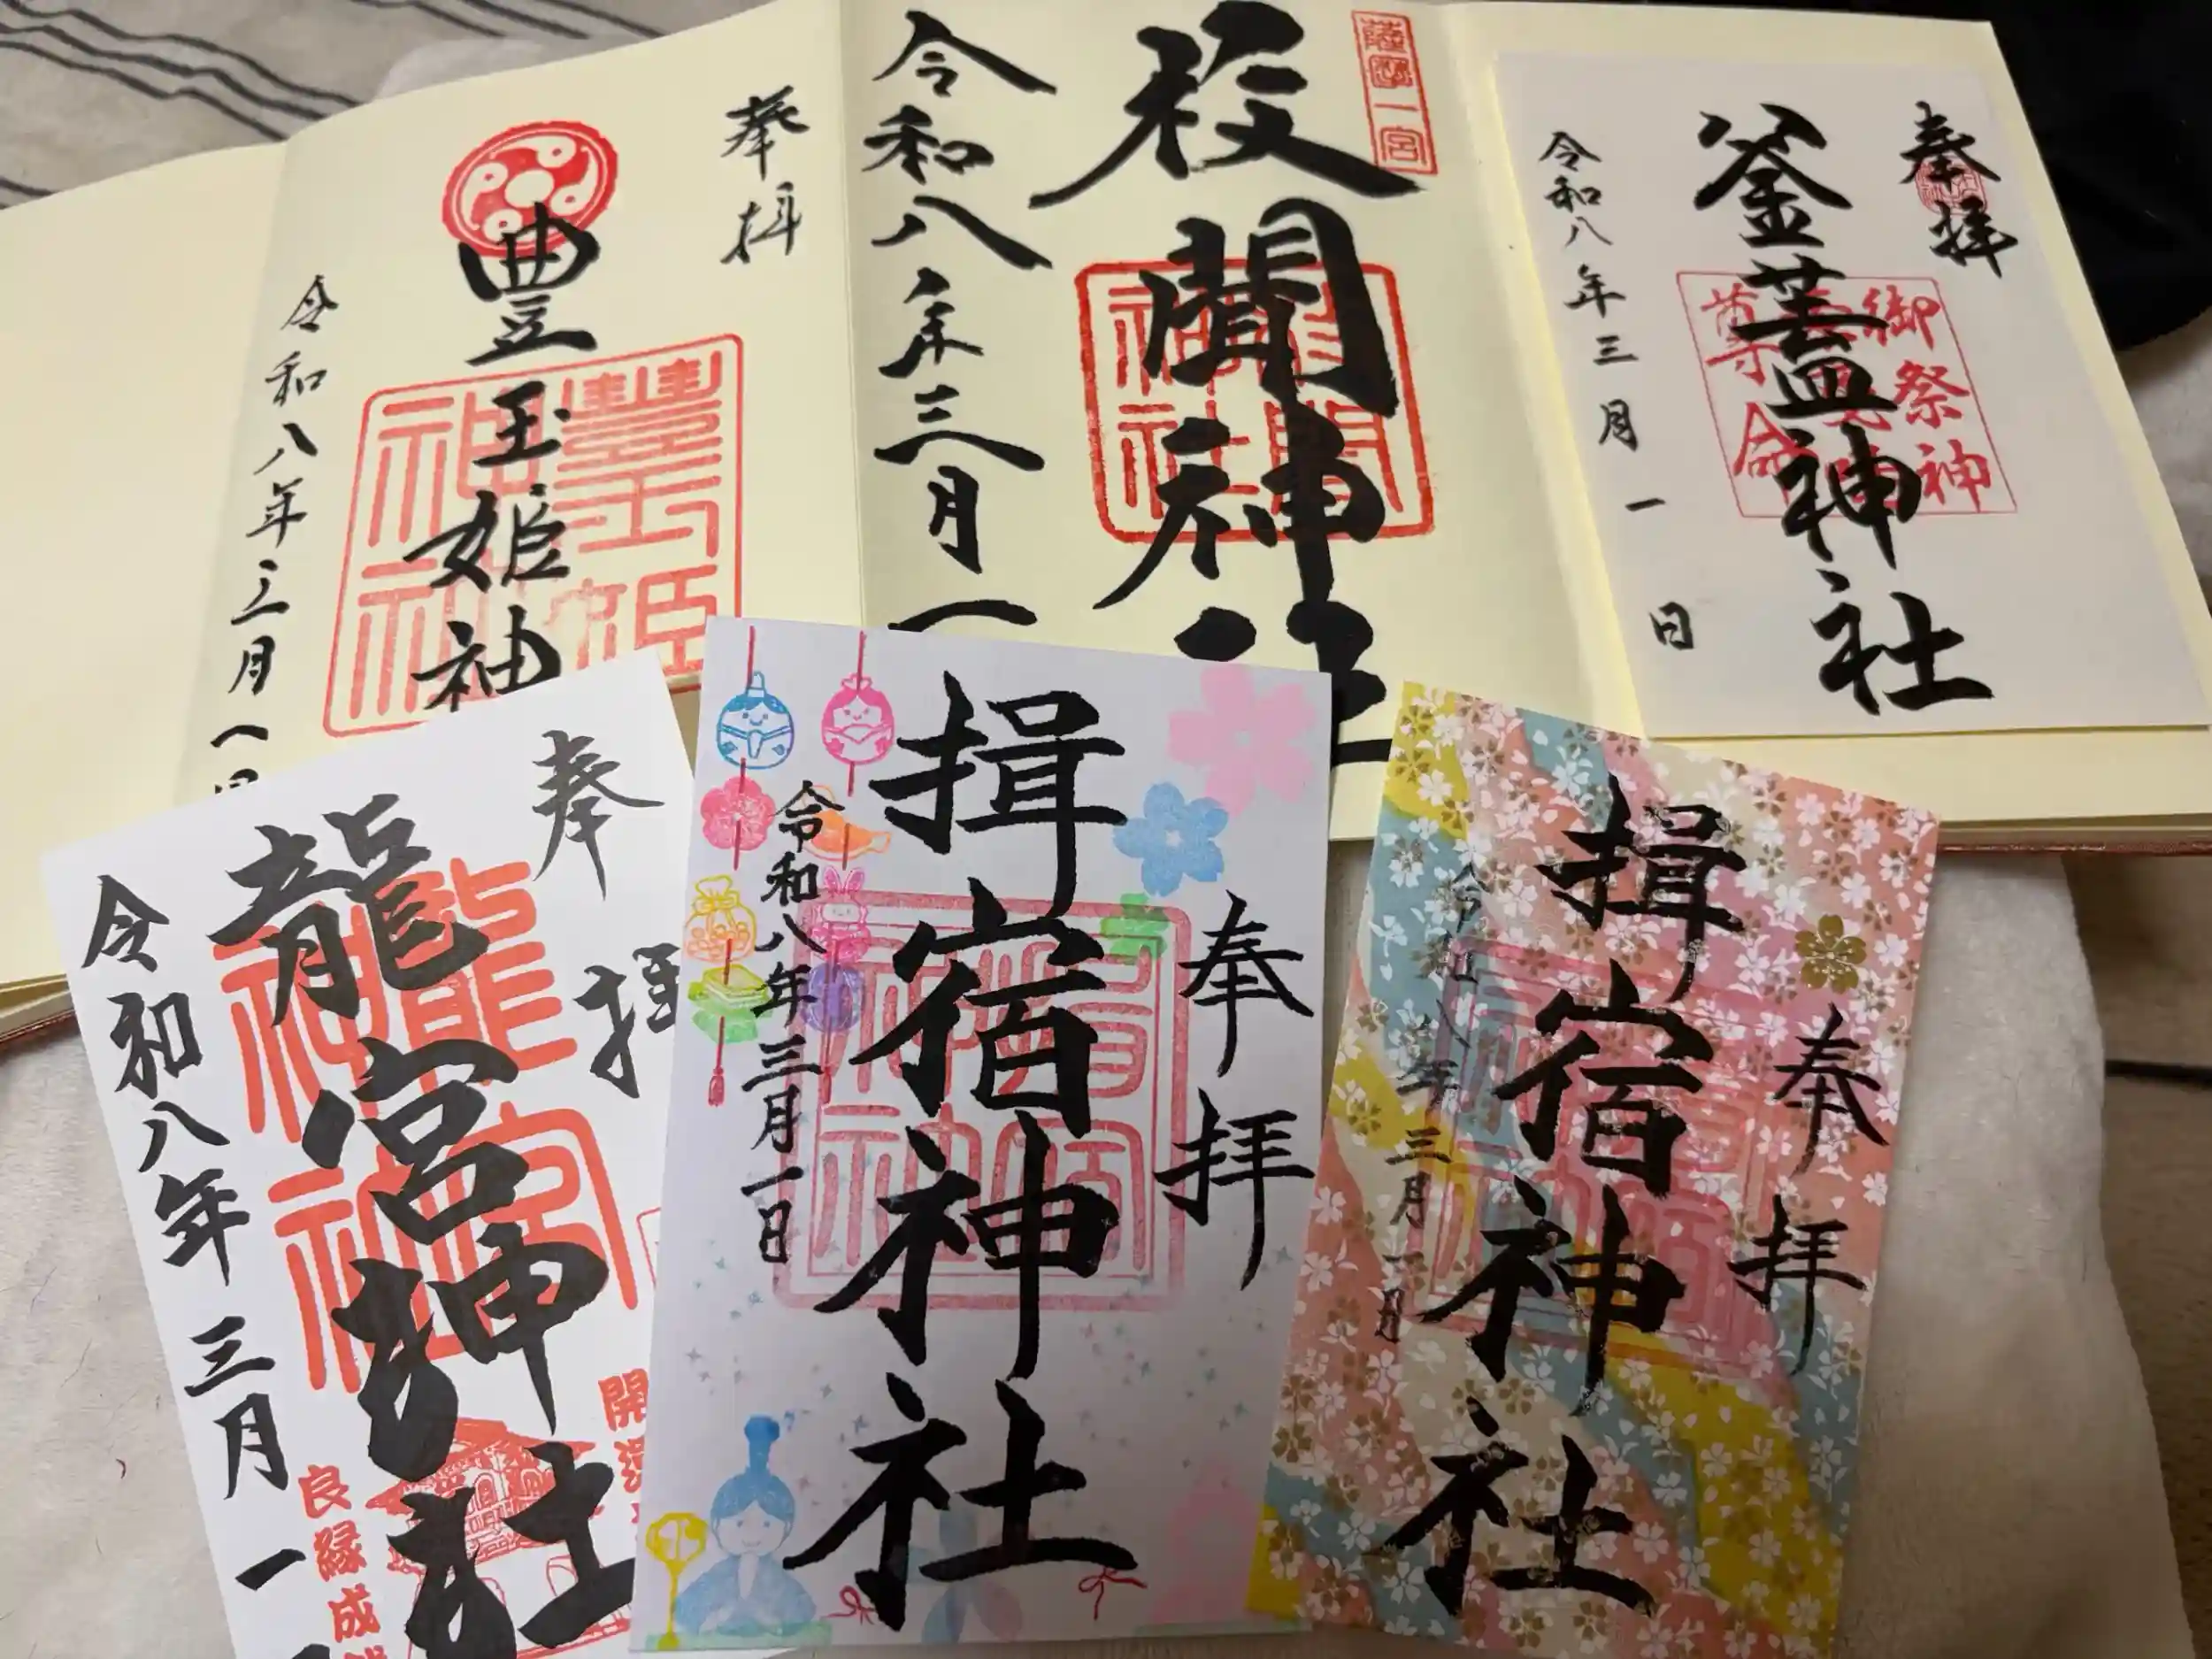 奉拝
釜蓋神社
御祭神
令和八年三月一日
薩摩一宮
枚聞神社
令和八年三月一
奉拝
豊玉姫神
豊玉姫神社
令和八年三月一日
奉拝
揖宿神社
令和八年三月一日
奉拝
揖宿神社
令和八年三月一日
奉拝
龍宮神社
龍宮神社
開
良縁成
令和八年三月一